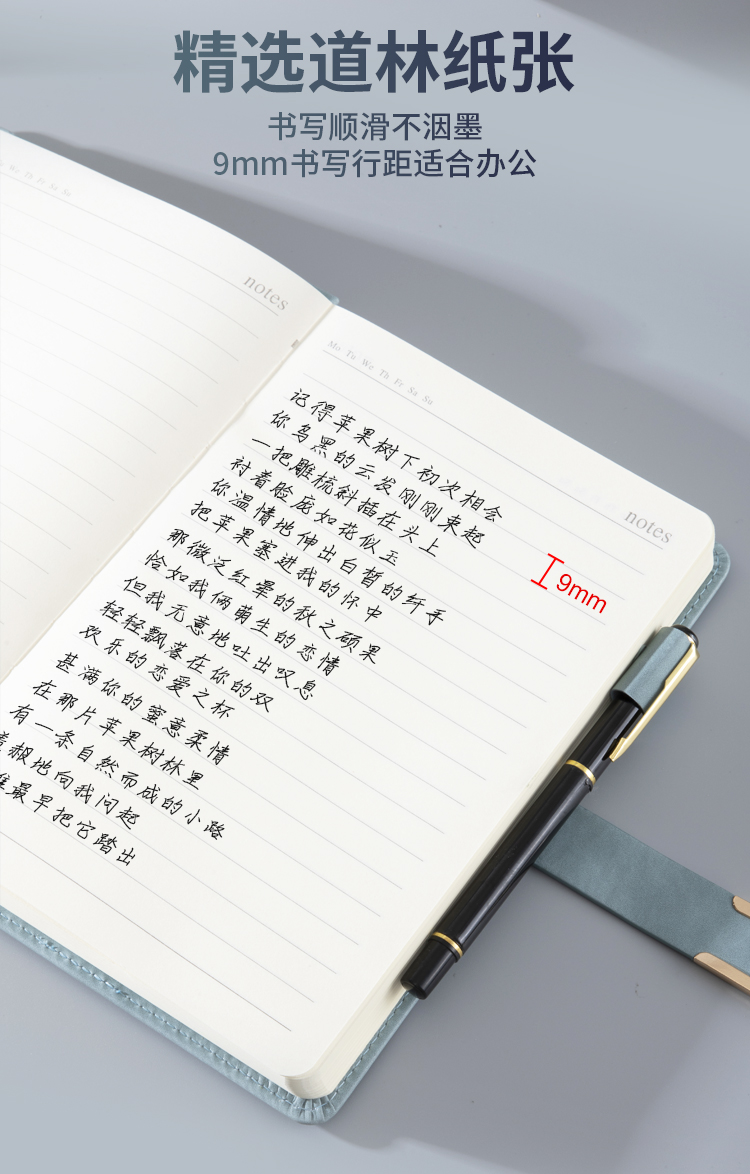 精选道林纸张
书写顺滑不洇墨
9mm书写行距适合办公
Th Fr Sa Su
notes
Mo Tu We Th Fr Sa Su
notes
记得苹果树下初次相会
你乌黑的云发刚刚束起
一把雕梳斜插在头上
衬着脸庞如花似玉
你温情地伸出白皙的纤手
把苹果塞进我的怀中
那微泛红晕的秋之硕果
恰如我俩萌生的恋情
但我无意地吐出叹息
轻轻飘落在你的双
欢乐的恋爱之杯
甚满你的蜜意柔情
在那片苹果树林里
有一条自然而成的小路
赧地向我问起
最早把它踏出
9mm